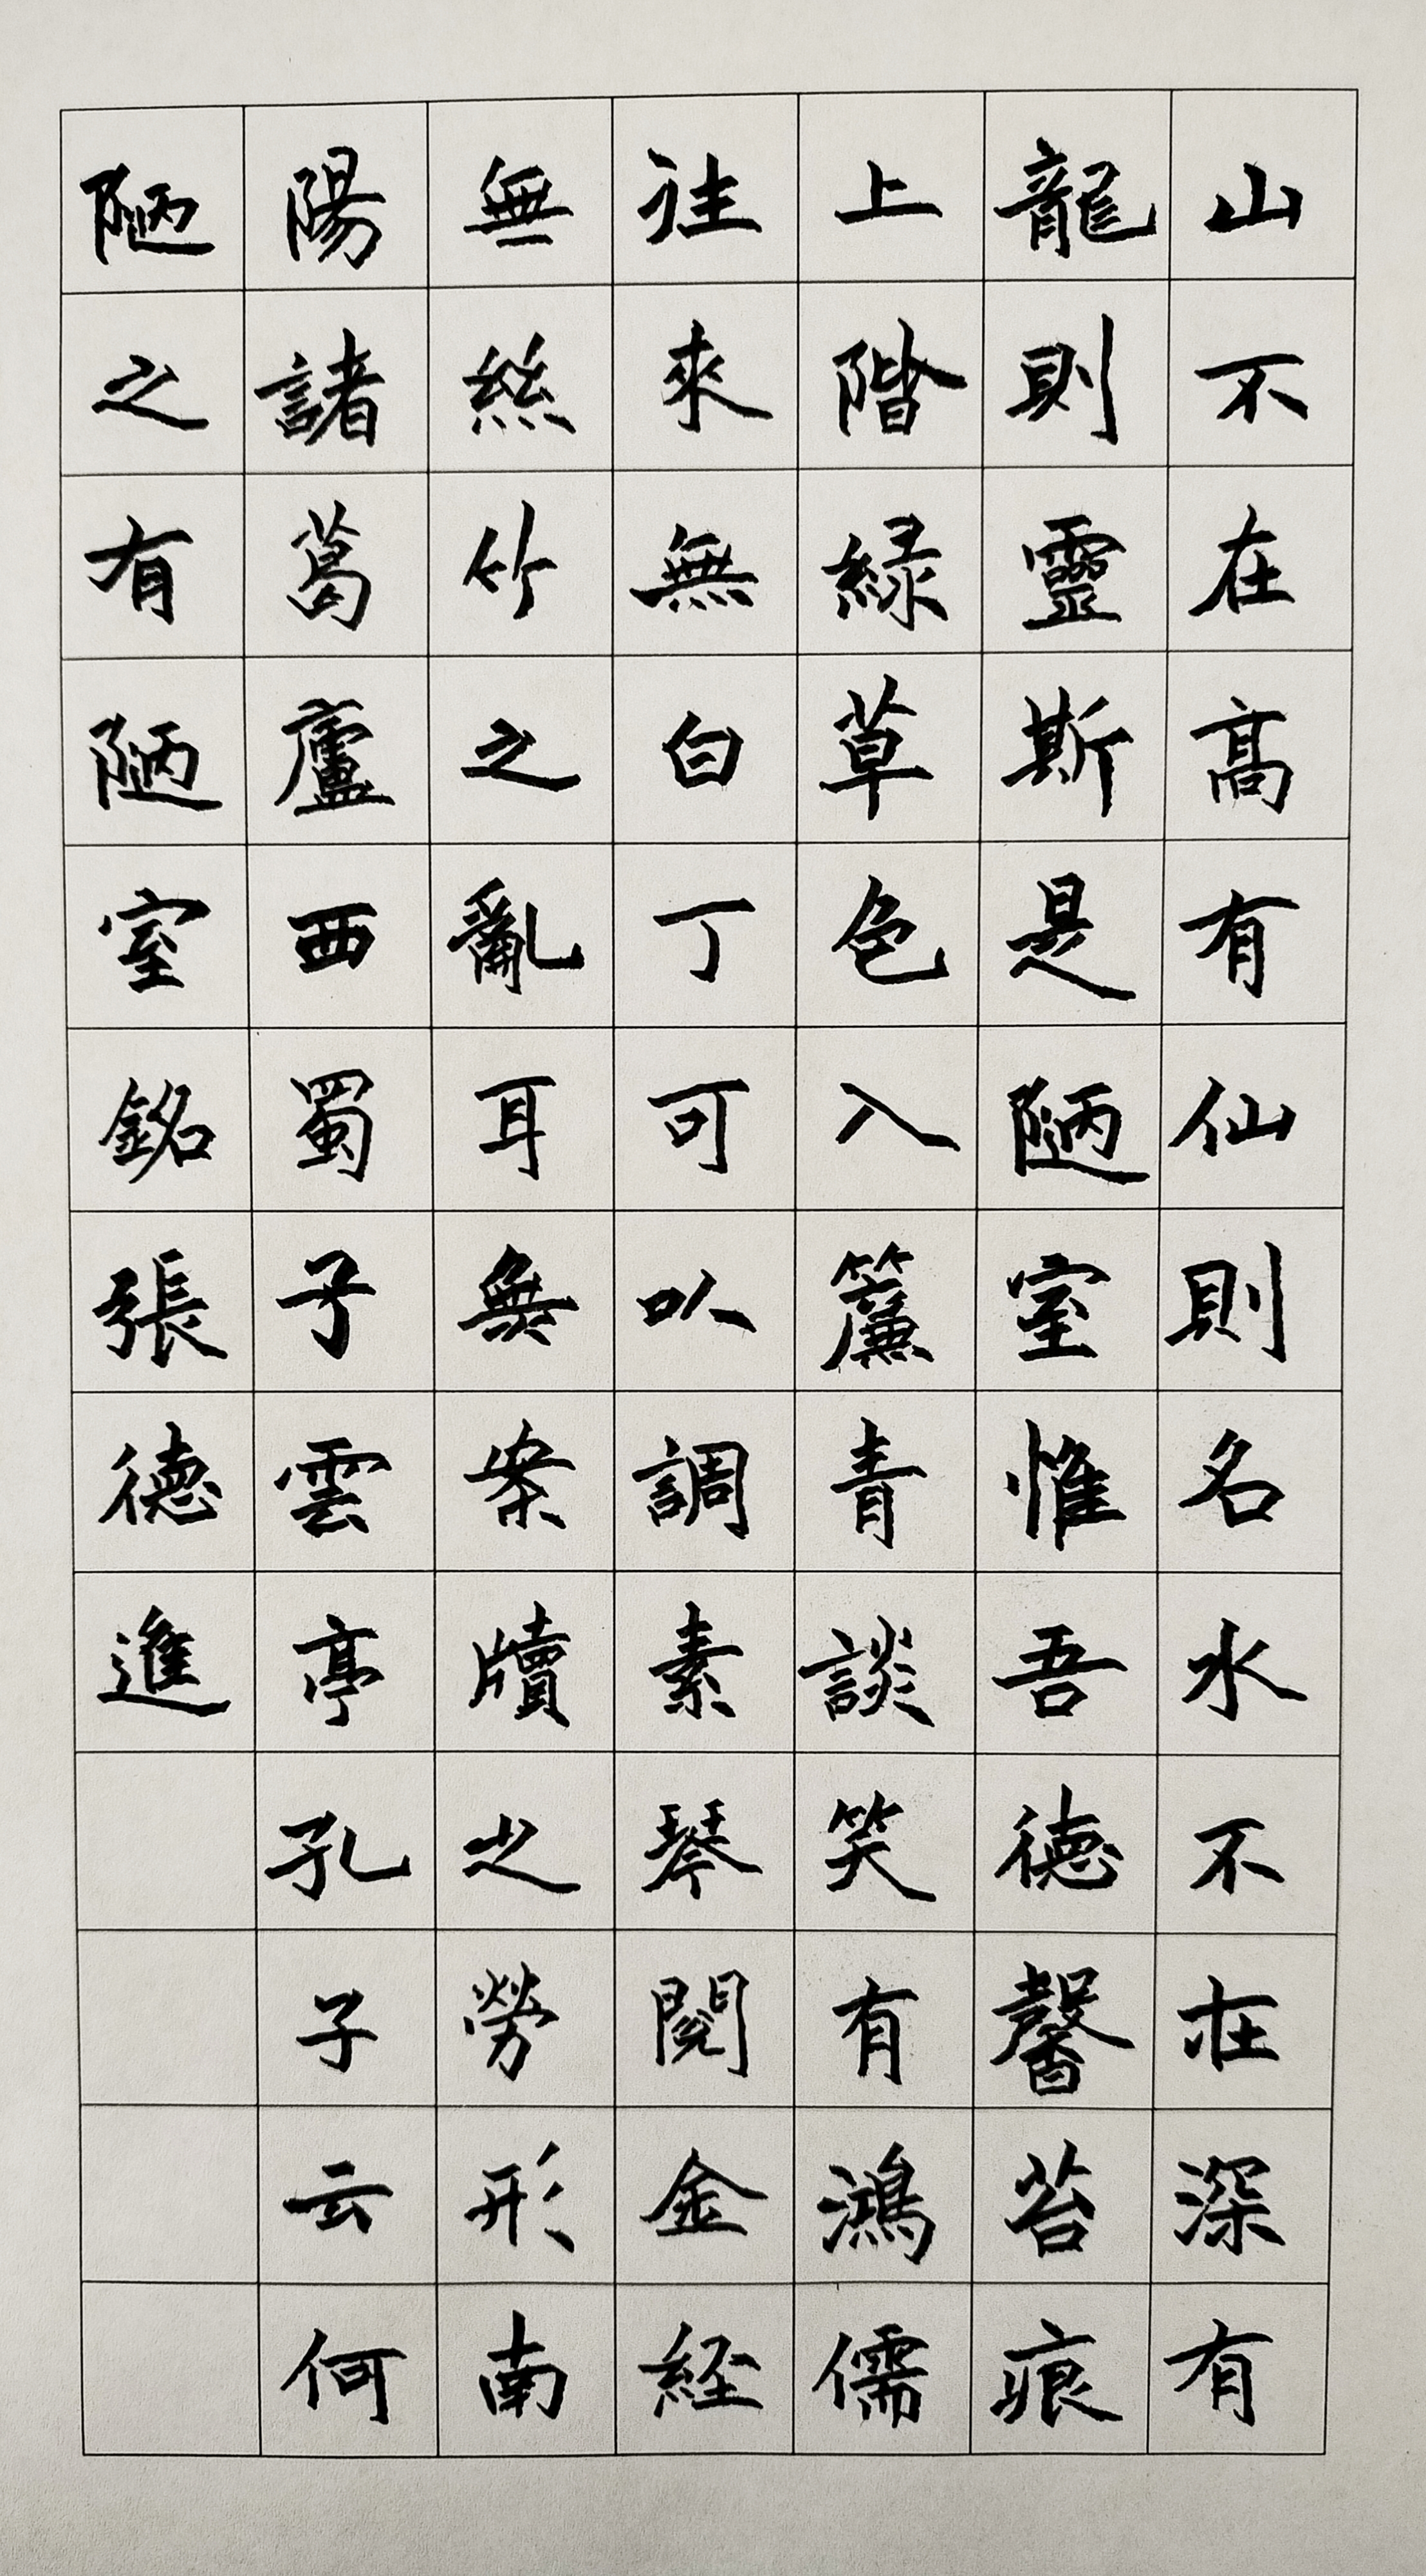 山不在高有仙則名水不在深有
龍則靈斯是陋室惟吾德馨苔痕
上階緑草色入簾青談笑有鴻儒
往來無白丁可以調素琴閱金経
無絲竹之亂耳無案牘之勞形南
陽諸葛廬西蜀子雲亭孔子云何
陋之有陋室銘張德進